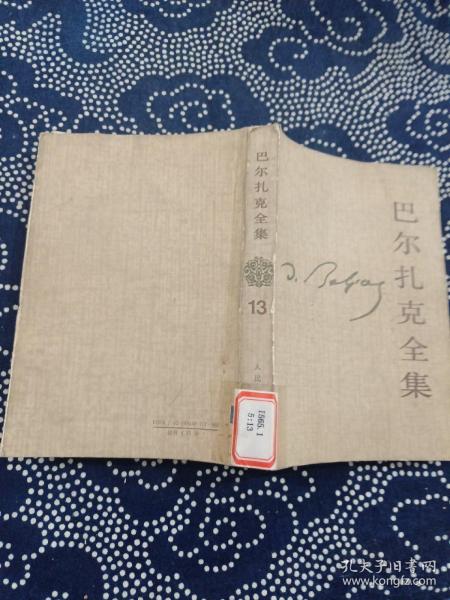 巴尔扎克全集
13
人民
I565.1
5:13
巴尔扎克全集
孔夫子旧书网
www.kongfz.com